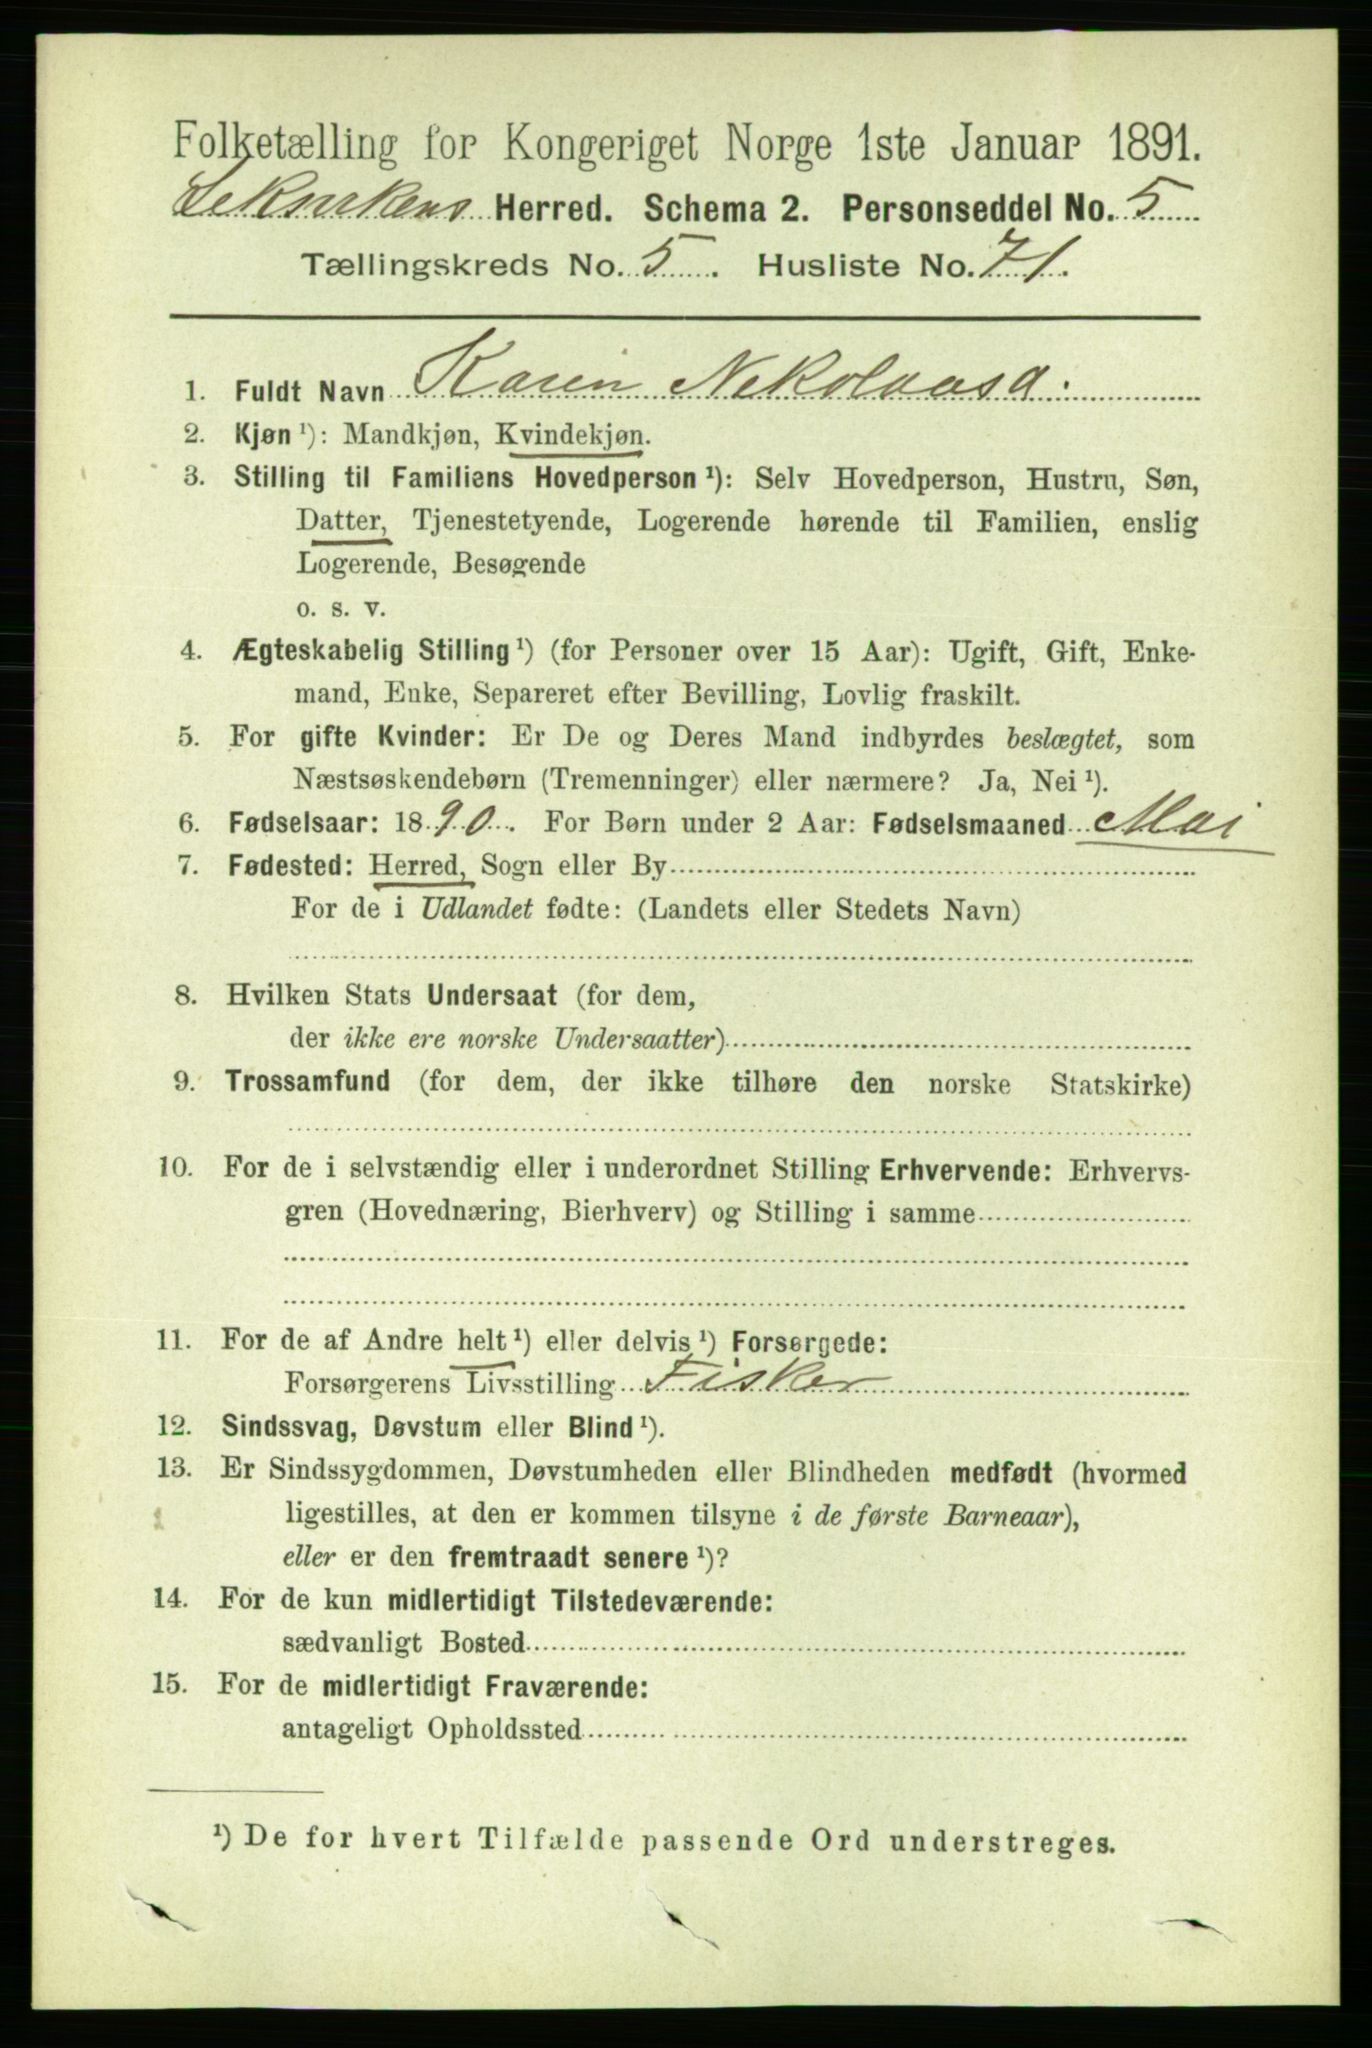 Folketælling for Kongeriget Norge 1ste Januar 1891.
Herred. Schema 2. Personseddel No. 5
Tællingskreds No. 5. Husliste No. 71.
1. Fuldt Navn Karen Nekolaasd.
2. Kjøn ¹): Mandkjøn, Kvindekjøn.
3. Stilling til Familiens Hovedperson ¹): Selv Hovedperson, Hustru, Søn,
Datter, Tjenestetyende, Logerende hørende til Familien, enslig
Logerende, Besøgende
o. s. v.
4. Ægteskabelig Stilling ¹) (for Personer over 15 Aar): Ugift, Gift, Enke-
mand, Enke, Separeret efter Bevilling, Lovlig fraskilt.
5. For gifte Kvinder: Er De og Deres Mand indbyrdes beslægtet, som
Næstsøskendebørn (Tremenninger) eller nærmere? Ja, Nei ¹).
6. Fødselsaar: 1890. For Børn under 2 Aar: Fødselsmaaned Mai
7. Fødested: Herred, Sogn eller By
For de i Udlandet fødte: (Landets eller Stedets Navn)
8. Hvilken Stats Undersaat (for dem,
der ikke ere norske Undersaatter)
9. Trossamfund (for dem, der ikke tilhøre den norske Statskirke)
10. For de i selvstændig eller i underordnet Stilling Erhvervende: Erhvervs-
gren (Hovednæring, Bierhverv) og Stilling i samme
11. For de af Andre helt ¹) eller delvis ¹) Forsørgede:
Forsørgerens Livsstilling Fisker
12. Sindssvag, Døvstum eller Blind ¹).
13. Er Sindssygdommen, Døvstumheden eller Blindheden medfødt (hvormed
ligestilles, at den er kommen tilsyne i de første Barneaar),
eller er den fremtraadt senere ¹)?
14. For de kun midlertidigt Tilstedeværende:
sædvanligt Bosted
15. For de midlertidigt Fraværende:
antageligt Opholdssted
¹) De for hvert Tilfælde passende Ord understreges.